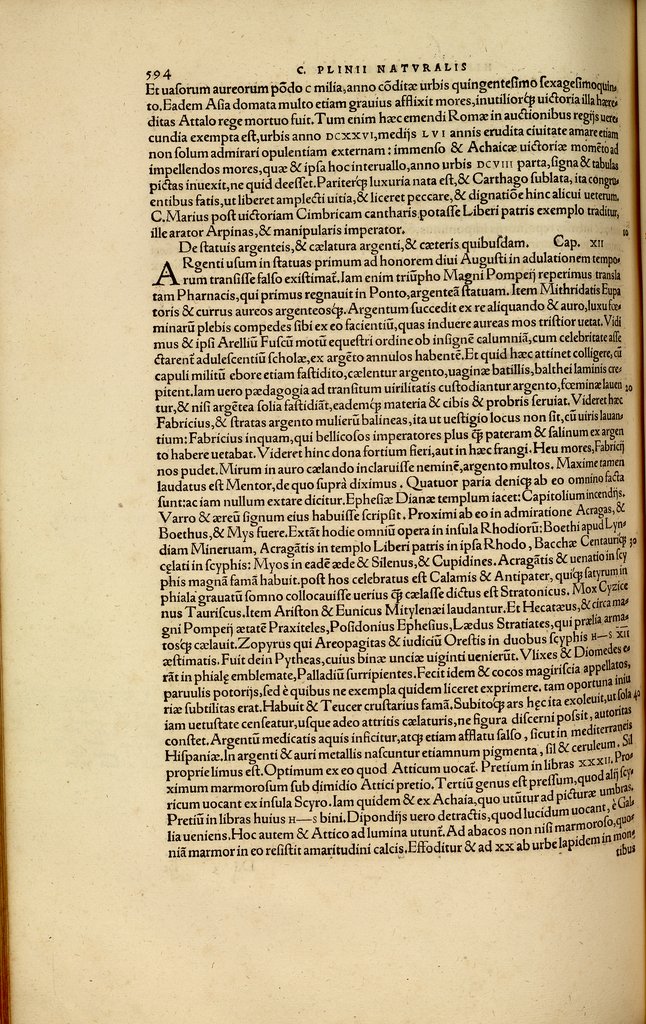 594
C. PLINII NATVRALIS
Et uasorum aureorum põdo c milia, anno cõditæ urbis quingentesimo sexagesimoquin-
to. Eadem Asia domata multo etiam grauius afflixit mores, inutiliorq́ uictoria illa hære-
ditas Attalo rege mortuo fuit. Tum enim hæc emendi Romæ in auctionibus regijs uere-
cundia exempta est, urbis anno DCXXVI, medijs LVI annis erudita ciuitate amare etiam
non solum admirari opulentiam externam: immenso & Achaicæ uictoriæ momẽto ad
impellendos mores, quæ & ipsa hoc interuallo, anno urbis DCVIII parta, signa & tabulas
pictas inuexit, ne quid deesset. Pariterq́ luxuria nata est, & Carthago sublata, ita congru-
entibus fatis, ut liberet amplecti uitia, & liceret peccare, & dignatiõe hinc alicui ueterum.
C. Marius post uictoriam Cimbricam cantharis potasse Liberi patris exemplo traditur,
ille arator Arpinas, & manipularis imperator. 10
De statuis argenteis, & cælatura argenti, & cæteris quibusdam. Cap. XII
ARgenti usum in statuas primum ad honorem diui Augusti in adulationem tempo-
rum transisse falso existimat̃. Iam enim triũpho Magni Pompeij reperimus transla
tam Pharnacis, qui primus regnauit in Ponto, argenteã statuam. Item Mithridatis Eupa
toris & currus aureos argenteosq́. Argentum succedit ex re aliquando & auro, luxu fœ-
minarũ plebis compedes sibi ex eo facientiũ, quas induere aureas mos tristior uetat. Vidi
mus & ipsi Arelliũ Fuscũ motũ equestri ordine ob insignẽ calumniã, cum celebritatẽ asse
ctarent adulescentiũ scholæ, ex argẽto annulos habentẽ. Et quid hæc attinet colligere, cũ
capuli militũ ebore etiam fastidito, cælentur argento, uaginæ batillis, balthei laminis cre-
pitent. Iam uero pædagogia ad transitum uirilitatis custodiantur argento, fœminæ lauen 20
tur, & nisi argẽtea solia fastidiãt, eademq́ materia & cibis & probris seruiat. Videret hæc
Fabricius, & stratas argento mulierũ balineas, ita ut uestigio locus non sit, cũ uiris lauan-
tium: Fabricius inquam, qui bellicosos imperatores plus q̃ pateram & salinum ex argen
to habere uetabat. Videret hinc dona fortium fieri, aut in hæc frangi. Heu mores, Fabricij
nos pudet. Mirum in auro cælando inclaruisse neminẽ, argento multos. Maxime tamen
laudatus est Mentor, de quo suprà diximus. Quatuor paria deniq́ ab eo omnino facta
sunt: ac iam nullum extare dicitur. Ephesiæ Dianæ templum iacet: Capitolium incendijs.
Varro & æreũ signum eius habuisse scripsit. Proximi ab eo in admiratione Acragas, &
Boethus, & Mys fuere. Extãt hodie omniũ opera in insula Rhodiorũ: Boethi apud Lyn-
diam Mineruam, Acragãtis in templo Liberi patris in ipsa Rhodo, Bacchæ Centauriq́ 30
cęlati in scyphis: Myos in eadẽ æde & Silenus, & Cupidines. Acragãtis & uenatio in scy
phis magnã famã habuit. post hos celebratus est Calamis & Antipater, quiq́ satyrum in
phiala grauatũ somno collocauisse uerius q̃ cælasse dictus est Stratonicus. Mox Cyzice
nus Tauriscus. Item Ariston & Eunicus Mitylenæi laudantur. Et Hecatæus, & circa ma-
gni Pompeij ætatẽ Praxiteles, Posidonius Ephesius, Lædus Stratiates, qui prælia arma-
tosq́ cælauit. Zopyrus qui Areopagitas & iudiciũ Orestis in duobus scyphis H—S XII
æstimatis. Fuit dein Pytheas, cuius binæ unciæ uiginti uenierũt. Vlixes & Diomedes e-
rãt in phialę emblemate, Palladiũ surripientes. Fecit idem & cocos magiriscia appellatos,
paruulis potorijs, sed è quibus ne exempla quidem liceret exprimere. tam oportuna iniu
riæ subtilitas erat. Habuit & Teucer crustarius famã. Subitoq́ ars hęc ita exoleuit, ut sola 40
iam uetustate censeatur, usque adeo attritis cælaturis, ne figura discerni possit, autoritas
constet. Argentũ medicatis aquis inficitur, atq́ etiam afflatu salso, sicut in mediterraneis
Hispaniæ. In argenti & auri metallis nascuntur etiamnum pigmenta, sil & ceruleum. Sil
proprie limus est. Optimum ex eo quod Atticum uocat̃. Pretium in libras XXXII. Pro-
ximum marmorosum sub dimidio Attici pretio. Tertiũ genus est pressum, quod alij scy-
ricum uocant ex insula Scyro. Iam quidem & ex Achaia, quo utũtur ad picturæ umbras.
Pretiũ in libras huius H—S bini. Dipondijs uero detractis, quod lucidum uocant, è Gal-
lia ueniens. Hoc autem & Attico ad lumina utunt̃. Ad abacos non nisi marmoroso, quo-
niã marmor in eo resistit amaritudini calcis. Effoditur & ad XX ab urbe lapidem in mon-
tibus